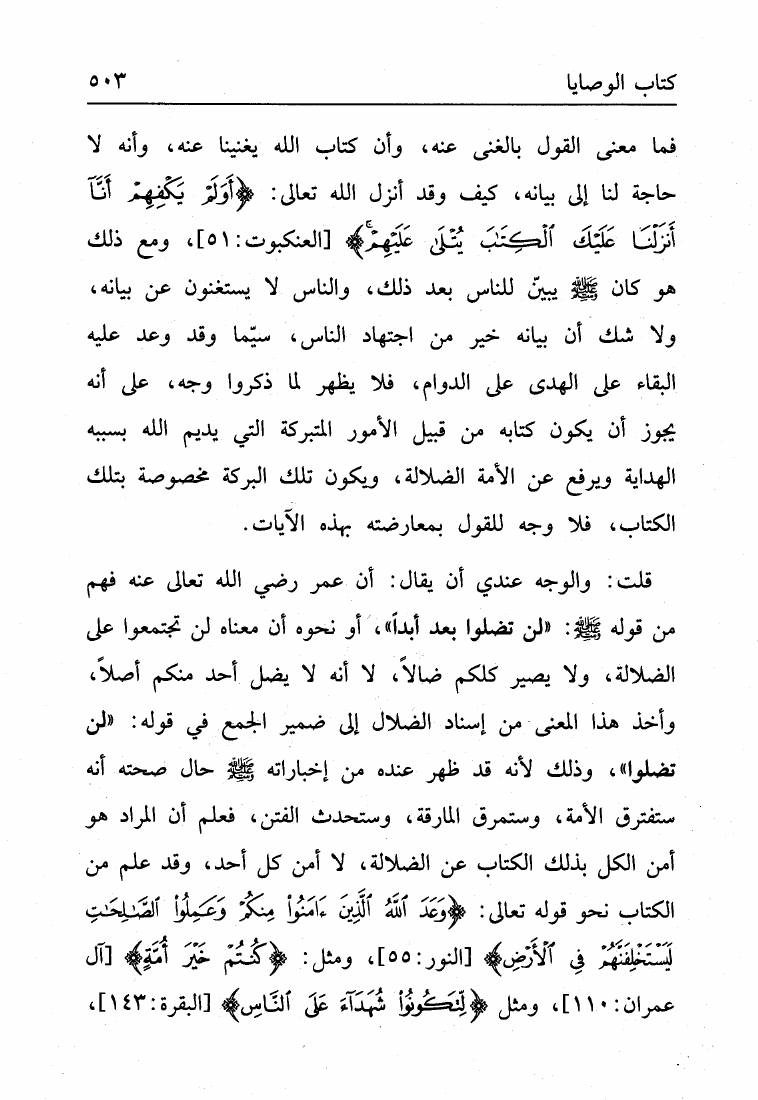 كتاب الوصايا ٥٠٣
فما معنى القول بالغنى عنه، وأن كتاب الله يغنينا عنه، وأنه لا
حاجة لنا إلى بيانه، كيف وقد أنزل الله تعالى: ﴿أَوَلَمْ يَكْفِهِمْ أَنَّآ
أَنزَلْنَا عَلَيْكَ ٱلْكِتَٰبَ يُتْلَىٰ عَلَيْهِمْۚ﴾ [العنكبوت:٥١]، ومع ذلك
هو كان ﷺ يبينّ للناس بعد ذلك، والناس لا يستغنون عن بيانه،
ولا شك أن بيانه خير من اجتهاد الناس، سيّما وقد وعد عليه
البقاء على الهدى على الدوام، فلا يظهر لما ذكروا وجه، على أنه
يجوز أن يكون كتابه من قبيل الأمور المتبركة التي يديم الله بسببه
الهداية ويرفع عن الأمة الضلالة، ويكون تلك البركة مخصوصة بتلك
الكتاب، فلا وجه للقول بمعارضته بهذه الآيات.
قلت: والوجه عندي أن يقال: أن عمر رضي الله تعالى عنه فهم
من قوله ﷺ: «لن تضلوا بعد أبداً»، أو نحوه أن معناه لن تجتمعوا على
الضلالة، ولا يصير كلكم ضالاً، لا أنه لا يضل أحد منكم أصلاً،
وأخذ هذا المعنى من إسناد الضلال إلى ضمير الجمع في قوله: «لن
تضلوا»، وذلك لأنه قد ظهر عنده من إخباراته ﷺ حال صحته أنه
ستفترق الأمة، وستمرق المارقة، وستحدث الفتن، فعلم أن المراد هو
أمن الكل بذلك الكتاب عن الضلالة، لا أمن كل أحد، وقد علم من
الكتاب نحو قوله تعالى: ﴿وَعَدَ ٱللَّهُ ٱلَّذِينَ ءَامَنُوا۟ مِنكُمْ وَعَمِلُوا۟ ٱلصَّٰلِحَٰتِ
لَيَسْتَخْلِفَنَّهُمْ فِي ٱلْأَرْضِ﴾ [النور:٥٥]، ومثل: ﴿كُنتُمْ خَيْرَ أُمَّةٍ﴾ [آل
عمران:١١٠]، ومثل ﴿لِّتَكُونُوا۟ شُهَدَآءَ عَلَى ٱلنَّاسِ﴾ [البقرة:١٤٣]،